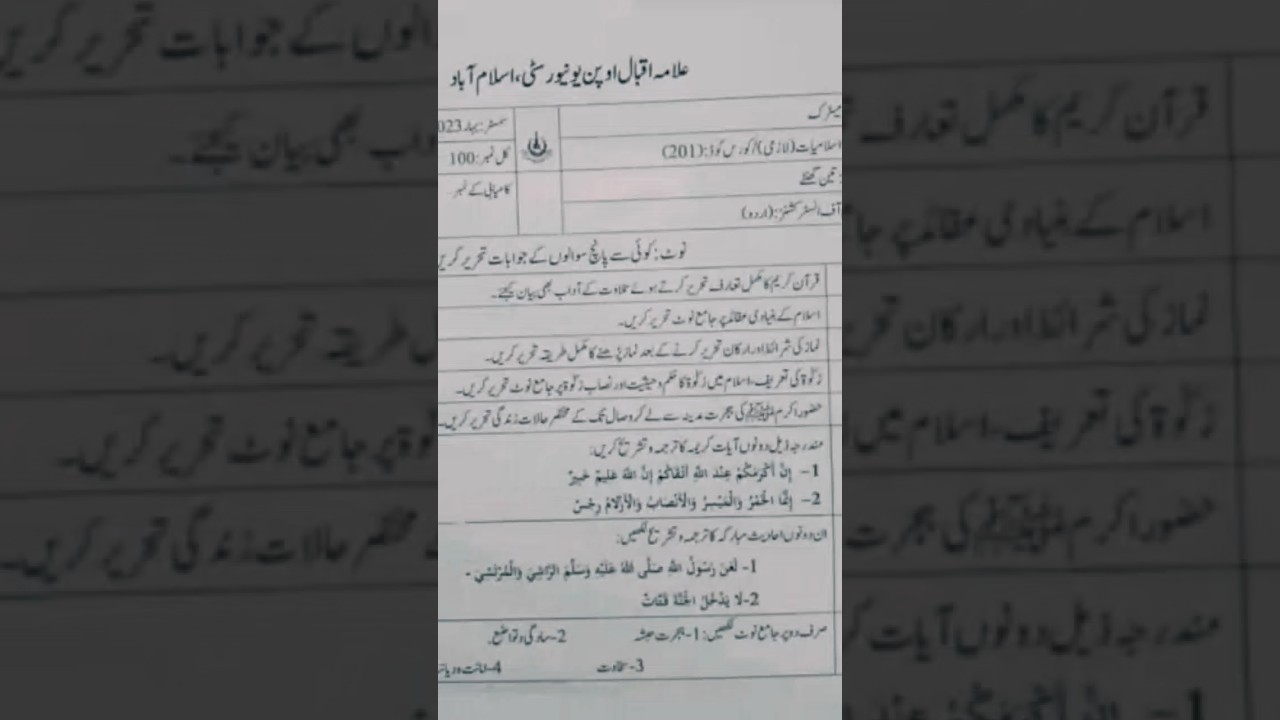 علامہ اقبال اوپن یونیورسٹی، اسلام آباد
میٹرک سمسٹر: بہار 023
اسلامیات (لازمی)/کورس کوڈ: (201) کل نمبر: 100
: تین گھنٹے کامیابی کے نمبر
آف انسٹرکشنز: (اردو)
نوٹ: کوئی سے پانچ سوالوں کے جوابات تحریر کریں
قرآن کریم کا مکمل تعارف تحریر کرتے ہوئے تلاوت کے آداب بھی بیان کیجئے۔
اسلام کے بنیادی عقائد پر جامع نوٹ تحریر کریں۔
نماز کی شرائط اور ارکان تحریر کرنے کے بعد نماز پڑھنے کا مکمل طریقہ تحریر کریں۔
زکوٰۃ کی تعریف، اسلام میں زکوٰۃ کا حکم و حیثیت اور نصاب زکوٰۃ پر جامع نوٹ تحریر کریں۔
حضور اکرم ﷺ کی ہجرت مدینہ سے لے کر وصال تک کے مختصر حالات زندگی تحریر کریں۔
مندرجہ ذیل دونوں آیات کریمہ کا ترجمہ و تشریح کریں:
1- إِنَّ أَكْرَمَكُمْ عِنْدَ اللهِ أَتْقَاكُمْ إِنَّ اللهَ عَلِيمٌ خَبِيرٌ
2- إِنَّمَا الْخَمْرُ وَالْمَيْسِرُ وَالْأَنْصَابُ وَالْأَزْلَامُ رِجْسٌ
ان دونوں احادیث مبارکہ کا ترجمہ و تشریح لکھیں:
1- لَعَنَ رَسُولُ اللهِ صَلَّى اللهُ عَلَيْهِ وَسَلَّمَ الرَّاشِيَ وَالْمُرْتَشِيَ -
2- لَا يَدْخُلُ الْجَنَّةَ قَتَّاتٌ
صرف دو پر جامع نوٹ لکھیں: 1- ہجرت حبشہ 2- سادگی و تواضع
3- سخاوت 4- امانت و دیانت